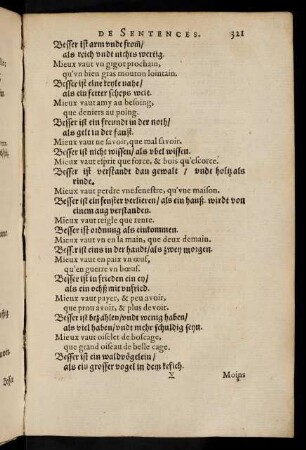 DE SENTENCES. 321
Besser ist arm vnde from/
als reich vndt nichts wertig.
Mieux vaut vn gigot prochain,
qu'vn bien gras mouton lointain.
Besser ist eine keyle nahe/
als ein fetter scheps weit.
Mieux vaut amy au besoing,
que deniers au poing.
Besser ist ein freundt in der noth/
als gelt in der faust.
Mieux vaut ne sauoir, que mal sauoir.
Besser ist nicht wissen/ als vbel wissen.
Mieux vaut esprit que force, & bois qu'escorce.
Besser ist verstandt dan gewalt / vndt holtz als
rinde.
Mieux vaut perdre vne fenestre, qu'vne maison.
Besser ist ein fenster verlieren/ als ein hauß. wirdt von
einem aug verstanden.
Mieux vaut reigle que rente.
Besser ist ordnung als einkommen.
Mieux vaut vn en la main, que deux demain.
Besser ist eins in der handt/ als zwey morgen.
Mieux vaut en paix vn œuf,
qu'en guerre vn bœuf.
Besser ist in frieden ein ey/
als ein ochß mit vnfried.
Mieux vaut payer, & peu auoir,
que prou auoir, & plus devoir.
Besser ist bezahlen/ vndt wenig haben/
als viel haben/ vndt mehr schuldig seyn.
Mieux vaut oiselet de boscage,
que grand oiseau de belle cage.
Besser ist ein waldvögelein/
als eis grosser vogel in dem kefich.
X Moins
Besser